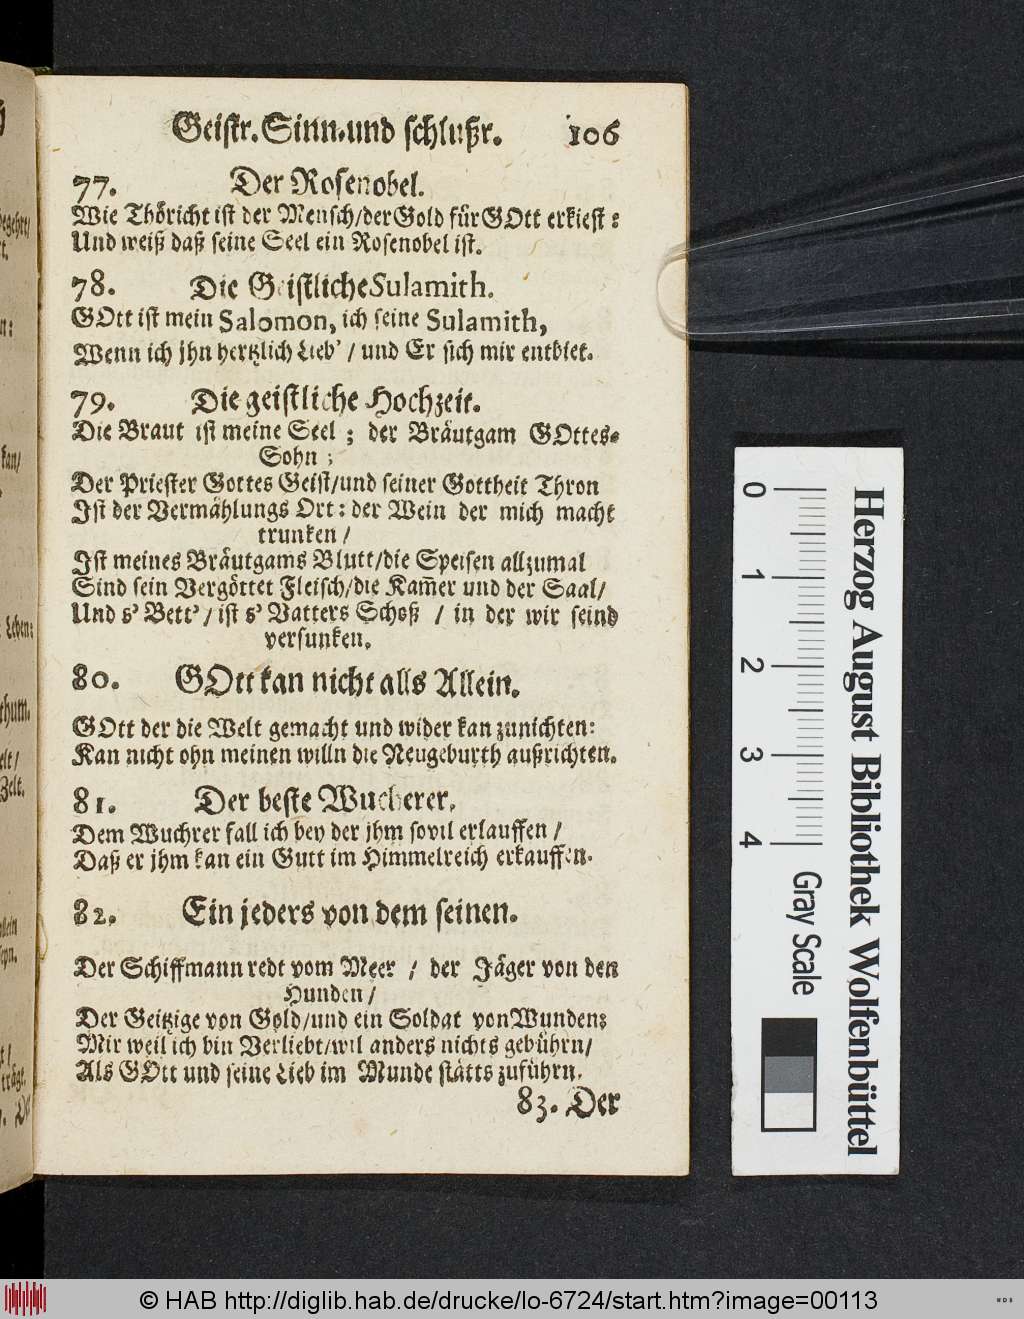 Geistr. Sinn-und schlußr. 106
77. Der Rosenobel.
Wie Thöricht ist der Mensch/der Gold für GOtt erkiest:
Und weiß daß seine Seel ein Rosenobel ist.
78. Die Geistliche Sulamith.
GOtt ist mein Salomon, ich seine Sulamith,
Wenn ich jhn hertzlich Lieb' / und Er sich mir entbiet.
79. Die geistliche Hochzeit.
Die Braut ist meine Seel; der Bräutgam GOttes-
Sohn;
Der Priester Gottes Geist/und seiner Gottheit Thron
Ist der Vermählungs Ort: der Wein der mich macht
trunken /
Ist meines Bräutgams Blutt/die Speisen allzumal
Sind sein Vergöttet Fleisch/die Kam̃er und der Saal/
Und s' Bett'/ ist s' Vatters Schoß / in der wir seind
versunken.
80. GOtt kan nicht alls Allein.
GOtt der die Welt gemacht und wider kan zunichten:
Kan nicht ohn meinen willn die Neugeburth außrichten.
81. Der beste Wucherer.
Dem Wuchrer fall ich bey der jhm sovil erlauffen /
Daß er jhm kan ein Gutt im Himmelreich erkauffen.
82. Ein jeders von dem seinen.
Der Schiffmann redt vom Meer / der Jäger von den
Hunden /
Der Geitzige von Gold/und ein Soldat von Wunden:
Mir weil ich bin Verliebt/wil anders nichts gebührn/
Als GOtt und seine Lieb im Munde stätts zuführn.
83. Der
Herzog August Bibliothek Wolfenbüttel
0 1 2 3 4 Gray Scale
© HAB http://diglib.hab.de/drucke/lo-6724/start.htm?image=00113